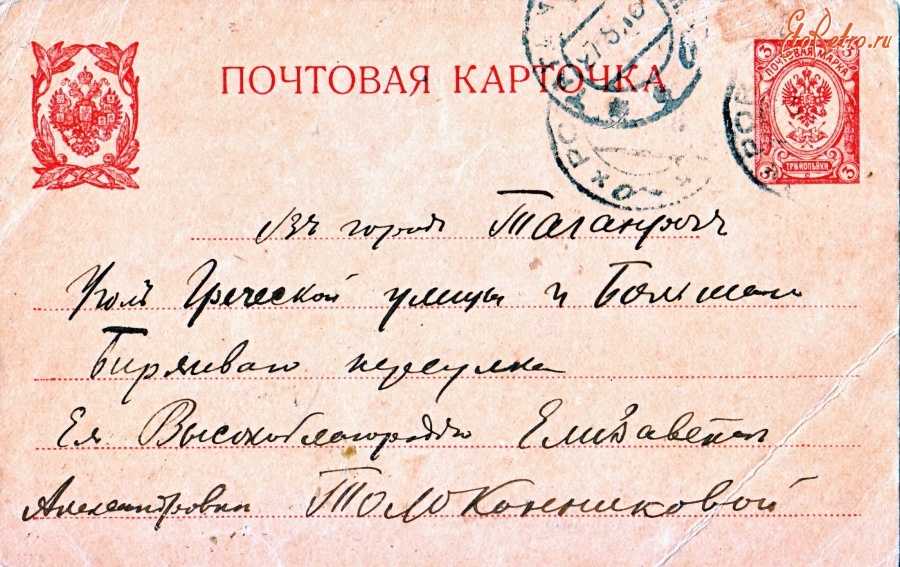 EtoRetro.ru
ПОЧТОВАЯ КАРТОЧКА
3 3
ПОЧТОВАЯ МАРКА
ТРИ КОПѢЙКИ
3 3
Въ городъ Таганрогъ
Уголъ Греческой улицы и Большого
Биржеваго переулка
Ея Высокоблагородію Елизаветѣ
Александровнѣ Толоконниковой